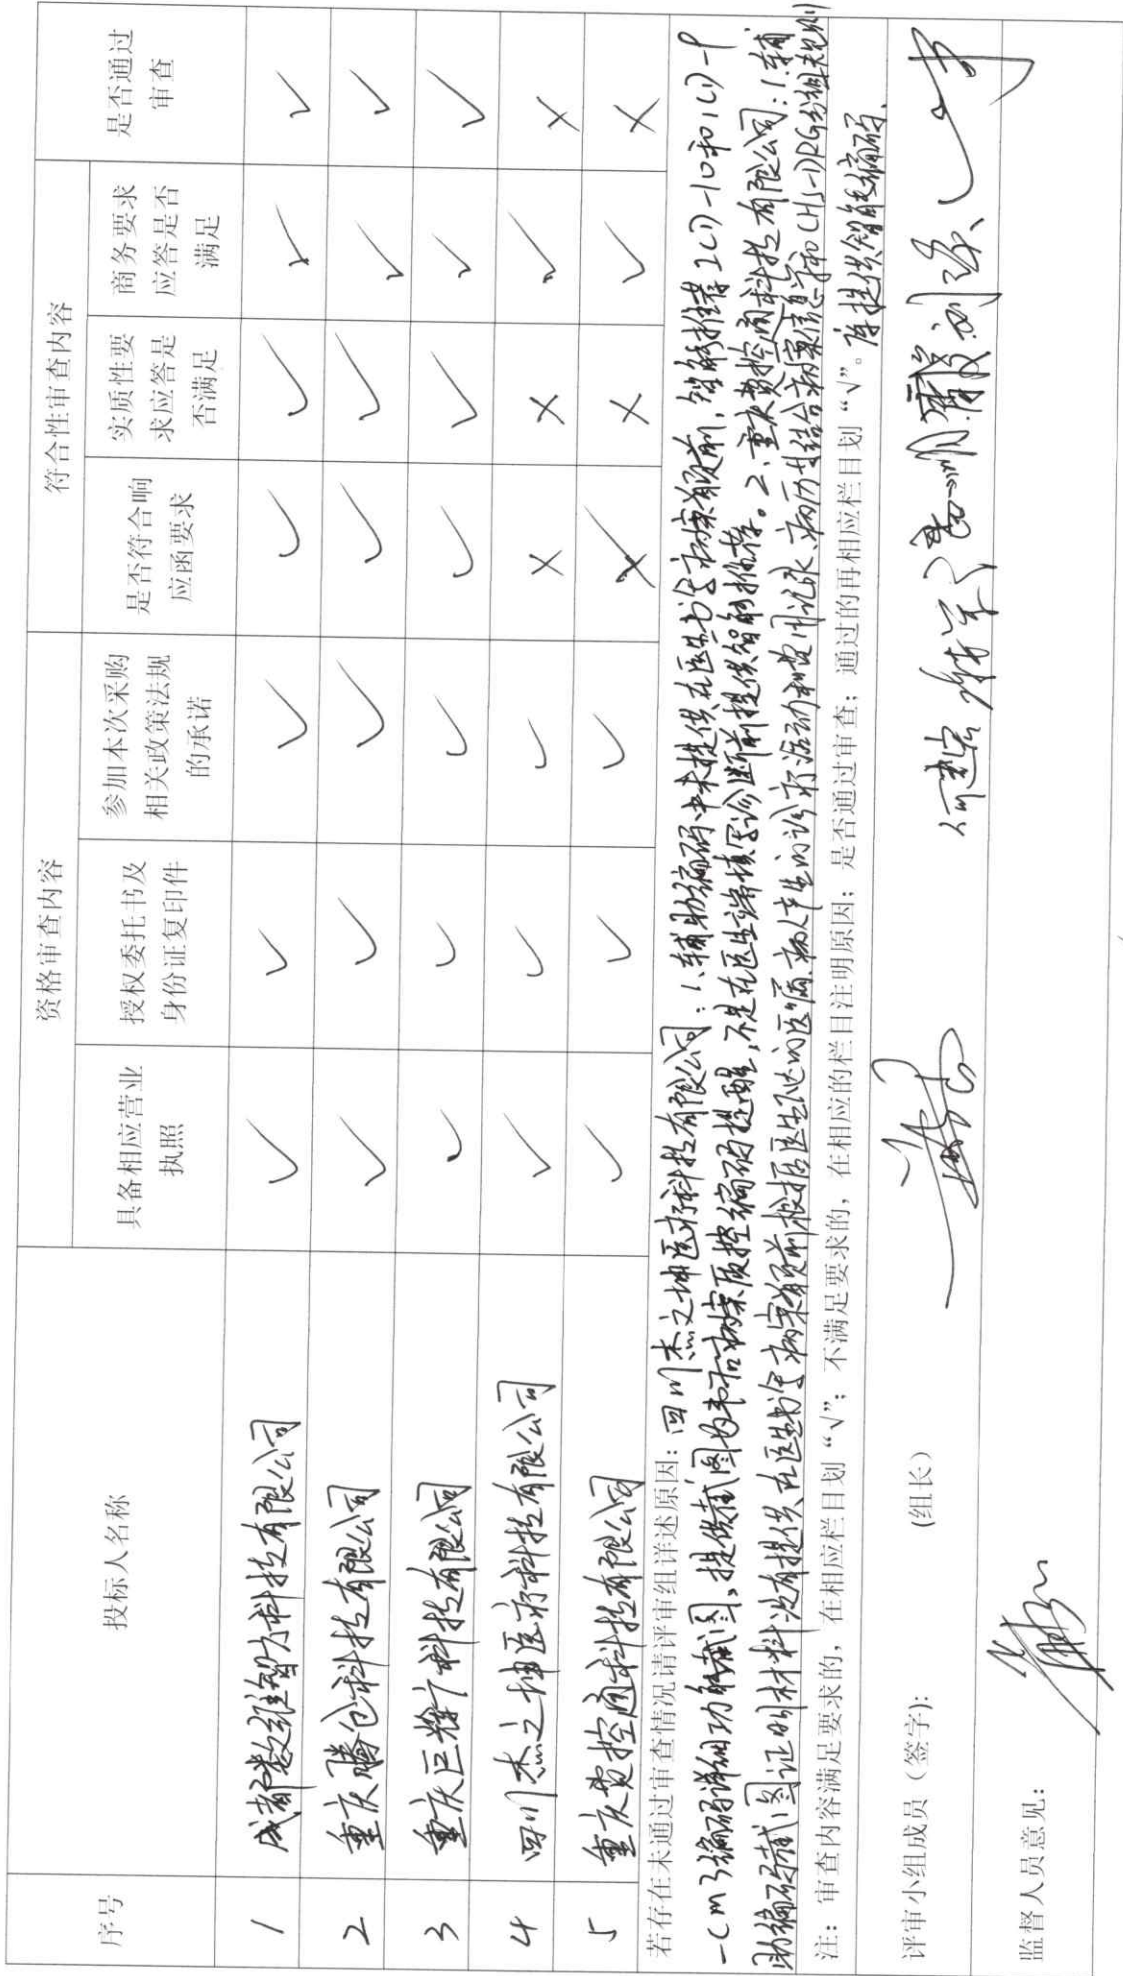 序号 投标人名称 资格审查内容 符合性审查内容 是否通过审查
具备相应营业执照 授权委托书及身份证复印件 参加本次采购相关政策法规的承诺 是否符合响应函要求 实质性要求应答是否满足 商务要求应答是否满足
1 成都数维智力科技有限公司 ✓ ✓ ✓ ✓ ✓ ✓ ✓
2 重庆腾仓科技有限公司 ✓ ✓ ✓ ✓ ✓ ✓ ✓
3 重庆巨辉广科技有限公司 ✓ ✓ ✓ ✓ ✓ ✓ ✓
4 四川杰之坤医疗科技有限公司 ✓ ✓ ✓ × × ✓ ×
5 重庆贯控通科技有限公司 ✓ ✓ ✓ × × ✓ ×
若存在未通过审查情况请评审组详述原因: 四川杰之坤医疗科技有限公司:1.辅助编码中未提供在医生书写病案首页前,智能推荐ICD-10和ICD-9
-CM3编码详细功能截图,提供截图为书后病案质控编码提醒,不是在医生端填写诊断前提供智能推荐。2.重庆贯控通科技有限公司:1.辅
助编码截图证明材料没有提供在医生书写病案首页前根据医生下达的医嘱、病人产生的诊疗活动和费用记录、病历书结合病案信息学和CHS-DRG分组规则
库提供智能编码。
注: 审查内容满足要求的,在相应栏目划“√”;不满足要求的,在相应的栏目注明原因;是否通过审查;通过的再相应栏目划“√”。
评审小组成员(签字): (组长)
监督人员意见: